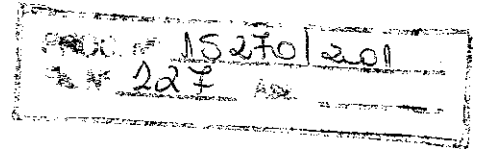 PROC. Nº 15270/201
Fls. Nº 227 Ass.